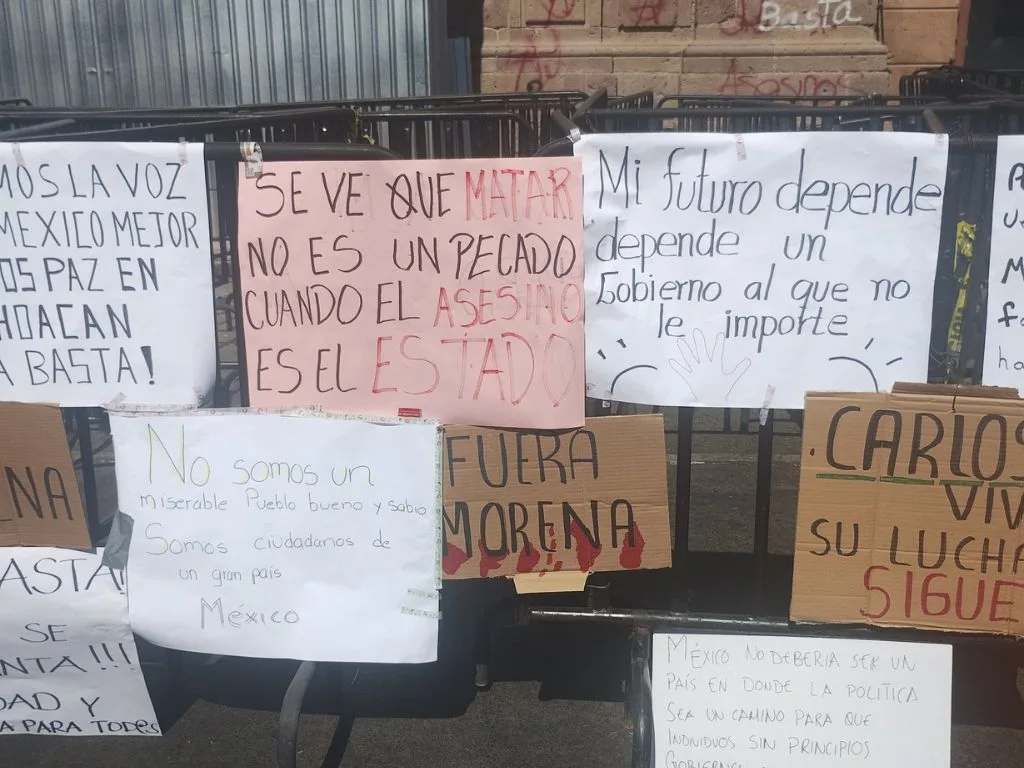 Basta
MOS LA VOZ
MEXICO MEJOR
OS PAZ EN
HOACAN
A BASTA!
SE VE QUE MATAR
NO ES UN PECADO
CUANDO EL ASESINO
ES EL ESTADO
Mi futuro depende
depende un
Gobierno al que no
le importe
NA
No somos un
miserable Pueblo bueno y sabio
Somos ciudadanos de
un gran país
México
FUERA
MORENA
.CARLOS
VIV
SU LUCHA
SIGUE
ASTA!
SE
NTA!!!
DAD Y
A PARA TODES
MÉXICO NO DEBERIA SER UN
PAÍS EN DONDE LA POLITICA
SEA UN CAMINO PARA QUE
INDIVIDUOS SIN PRINCIPIOS